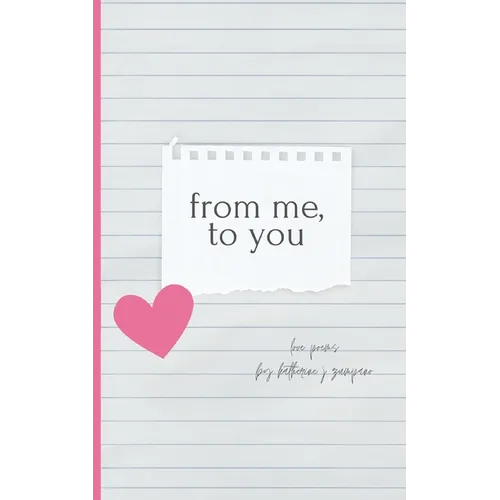 from me,
to you
love poems
by katherine j zumpano